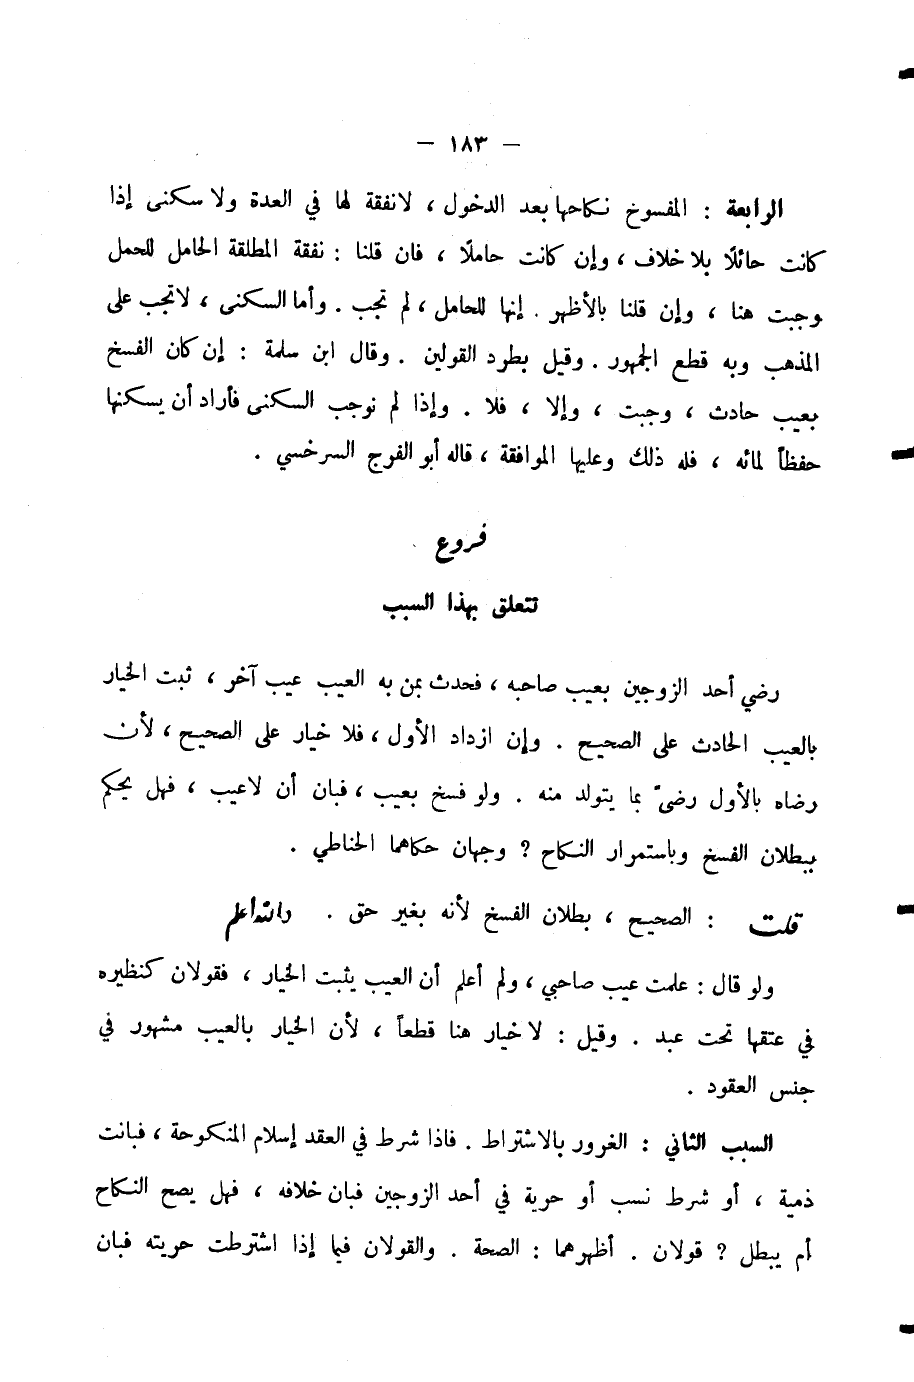 — ١٨٣ —
الرابعة : المفسوخ نكاحها بعد الدخول ، لانفقة لها في العدة ولا سكنى إذا
كانت حائلًا بلا خلاف ، وإن كانت حاملًا ، فان قلنا : نفقة المطلقة الحامل للحمل
وجبت هنا ، وإن قلنا بالأظهر . إنها للحامل ، لم تجب . وأما السكنى ، لاتجب على
المذهب وبه قطع الجمهور . وقيل بطرد القولين . وقال ابن سلمة : إن كان الفسخ
بعيب حادث ، وجبت ، وإلا ، فلا . وإذا لم نوجب السكنى فأراد أن يسكنها
حفظاً لمائه ، فله ذلك وعليها الموافقة ، قاله أبو الفرج السرخسي .
فروع
تتعلق بهذا السبب
رضي أحد الزوجين بعيب صاحبه ، فحدث بمن به العيب عيب آخر ، ثبت الخيار
بالعيب الحادث على الصحيح . وإن ازداد الأول ، فلا خيار على الصحيح ، لأن
رضاه بالأول رضىً بما يتولد منه . ولو فسخ بعيب ، فبان أن لاعيب ، فهل يحكم
ببطلان الفسخ وباستمرار النكاح ? وجهان حكاهما الحناطي .
قلت : الصحيح ، بطلان الفسخ لأنه بغير حق . والله أعلم
ولو قال : علمت عيب صاحبي ، ولم أعلم أن العيب يثبت الخيار ، فقولان كنظيره
في عتقها تحت عبد . وقيل : لا خيار هنا قطعاً ، لأن الخيار بالعيب مشهور في
جنس العقود .
السبب الثاني : الغرور بالاشتراط . فاذا شرط في العقد إسلام المنكوحة ، فبانت
ذمية ، أو شرط نسب أو حرية في أحد الزوجين فبان خلافه ، فهل يصح النكاح
أم يبطل ? قولان . أظهرهما : الصحة . والقولان فيما إذا اشترطت حريته فبان